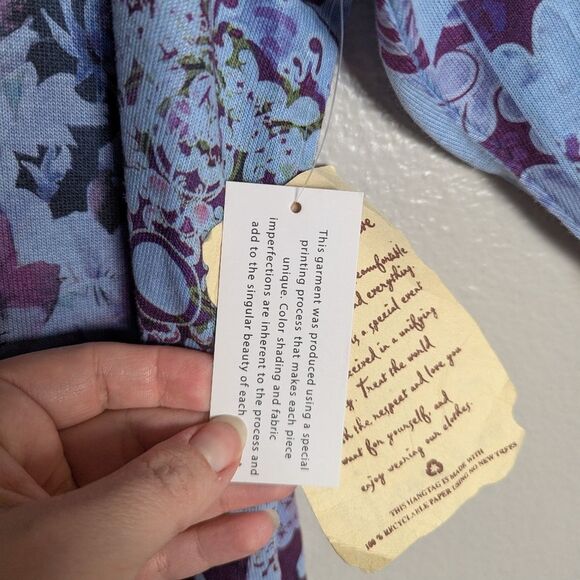 This garment was produced using a special
printing process that makes each piece
unique. Color shading and fabric
imperfections are inherent to the process and
add to the singular beauty of each
comfortable
everything.
is a special event
in a unifying
Treat the world
the respect and love you
want for yourself and
enjoy wearing our clothes.
THIS HANGTAG IS MADE WITH
100% RECYCLABLE PAPER USING NO NEW TREES